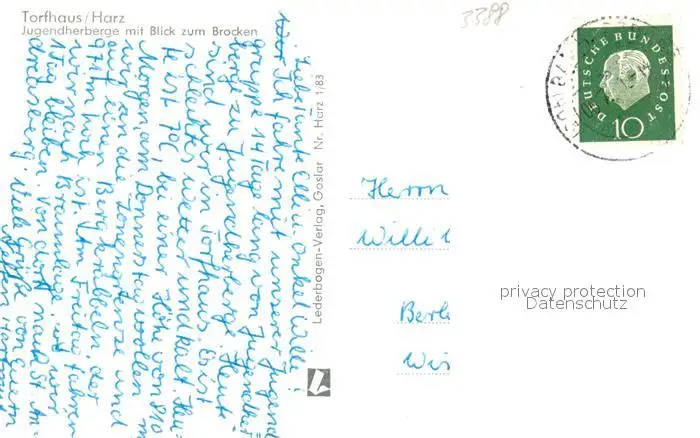 Torfhaus/Harz
Jugendherberge mit Blick zum Brocken
3388
DEUTSCHE BUNDESPOST
10
Liebe Tante Elli u. Onkel Willi!
Ich fahre mit unserer Jugend
gruppe 14 Tage lang von Jugendher
berge zu Jugendherberge. Heute
sind wir in Torfhaus. Es ist
schlechtes Wetter und kalt. Heu
te ist 7°C, bei einer Höhe von 810 m
Morgen am Donnerstag wollen
wir an die Zonengrenze und
auf einen Berg klettern, der
971 m hoch ist. Am Freitag fahren
wir nach Braunlage, wo wir
1 Tag bleiben. Von dort nach St. An
dreasberg. Viele Grüße von Eurem
Lederbogen-Verlag, Goslar Nr. Harz 1/83
Herrn
Willi
Berl
Wi
privacy protection
Datenschutz